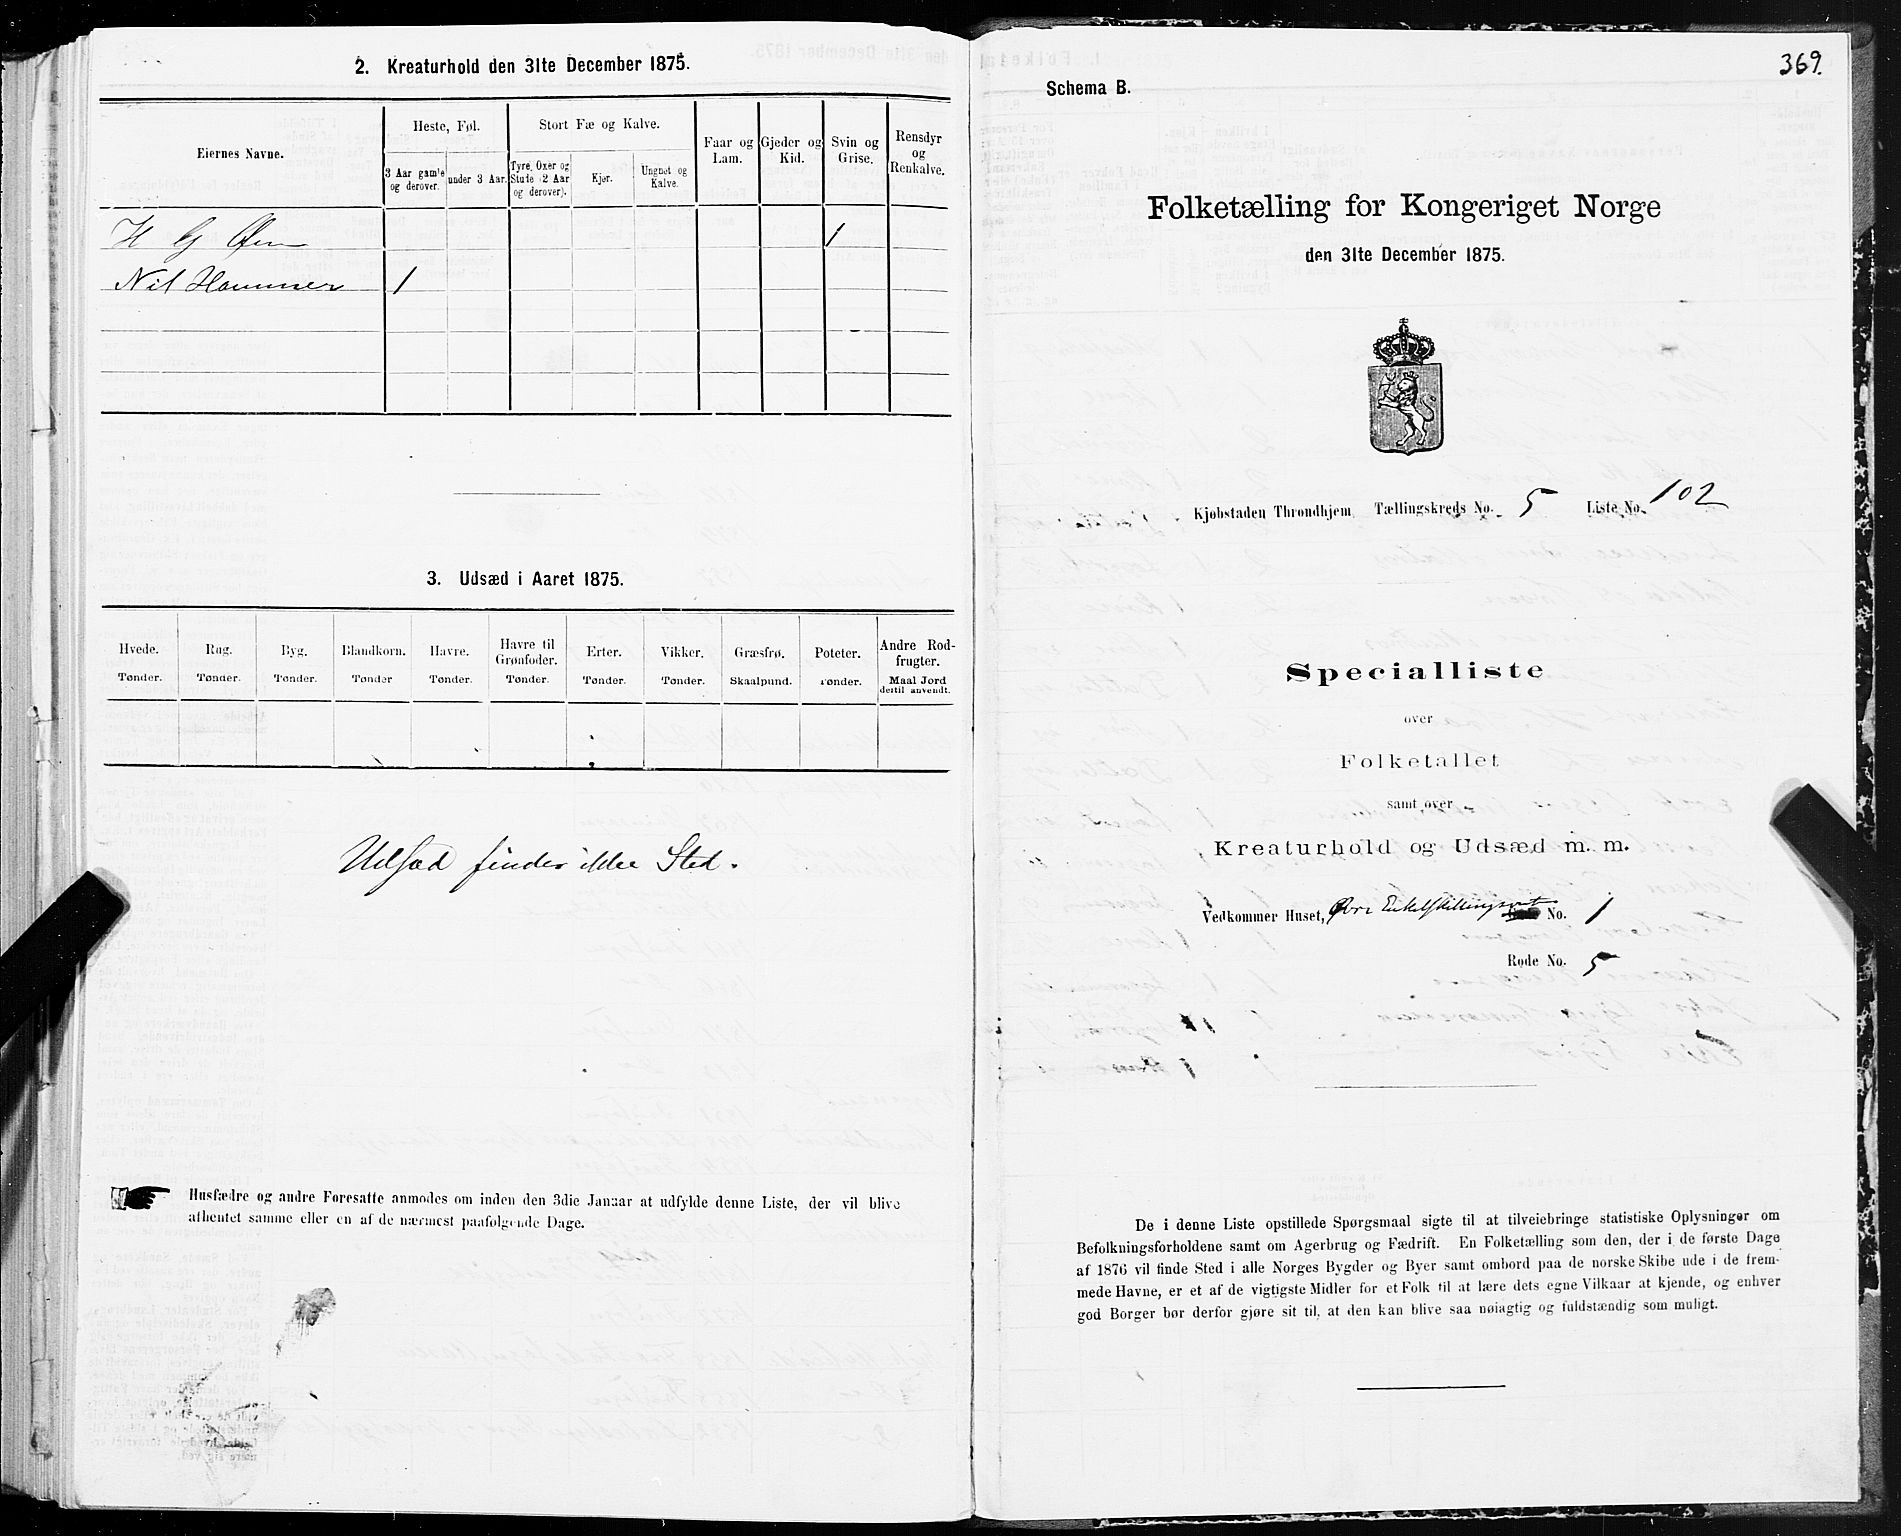 2. Kreaturhold den 31te December 1875.
Eiernes Navne.
Heste, Føl.
3 Aar gamle og derover.
under 3 Aar.
Stort Fæ og Kalve.
Tyre, Oxer og Stute (2 Aar og derover).
Kjør.
Ungnøt og Kalve.
Faar og Lam.
Gjeder og Kid.
Svin og Grise.
Rensdyr og Renkalve.
H G Øien 1
Nil Hammer 1
3. Udsæd i Aaret 1875.
Hvede. Rug. Byg. Blandkorn. Havre. Havre til Grønfoder. Erter. Vikker. Græsfrø. Poteter. Andre Rodfrugter.
Tønder. Tønder. Tønder. Tønder Tønder. Tønder. Tønder. Tønder. Skaalpund. Tønder. Maal Jord dertil anvendt.
Udsæd finder ikke Sted.
Husfædre og andre Foresatte anmodes om inden den 3die Januar at udfylde denne Liste, der vil blive
afhentet samme eller en af de nærmest paafølgende Dage.
369.
Schema B.
Folketælling for Kongeriget Norge
den 31te December 1875.
Kjøbstaden Throndhjem Tællingskreds No. 5 Liste No. 102
Specialliste
over
Folketallet
samt over
Kreaturhold og Udsæd m. m.
Vedkommer Huset, Øvre Enkelskillingsveit No. 1
Rode No. 5
De i denne Liste opstillede Spørgsmaal sigte til at tilveiebringe statistiske Oplysninger om
Befolkningsforholdene samt om Agerbrug og Fædrift. En Folketælling som den, der i de første Dage
af 1876 vil finde Sted i alle Norges Bygder og Byer samt ombord paa de norske Skibe ude i de frem-
mede Havne, er et af de vigtigste Midler for et Folk til at lære dets egne Vilkaar at kjende, og enhver
god Borger bør derfor gjøre sit til, at den kan blive saa nøiagtig og fuldstændig som muligt.